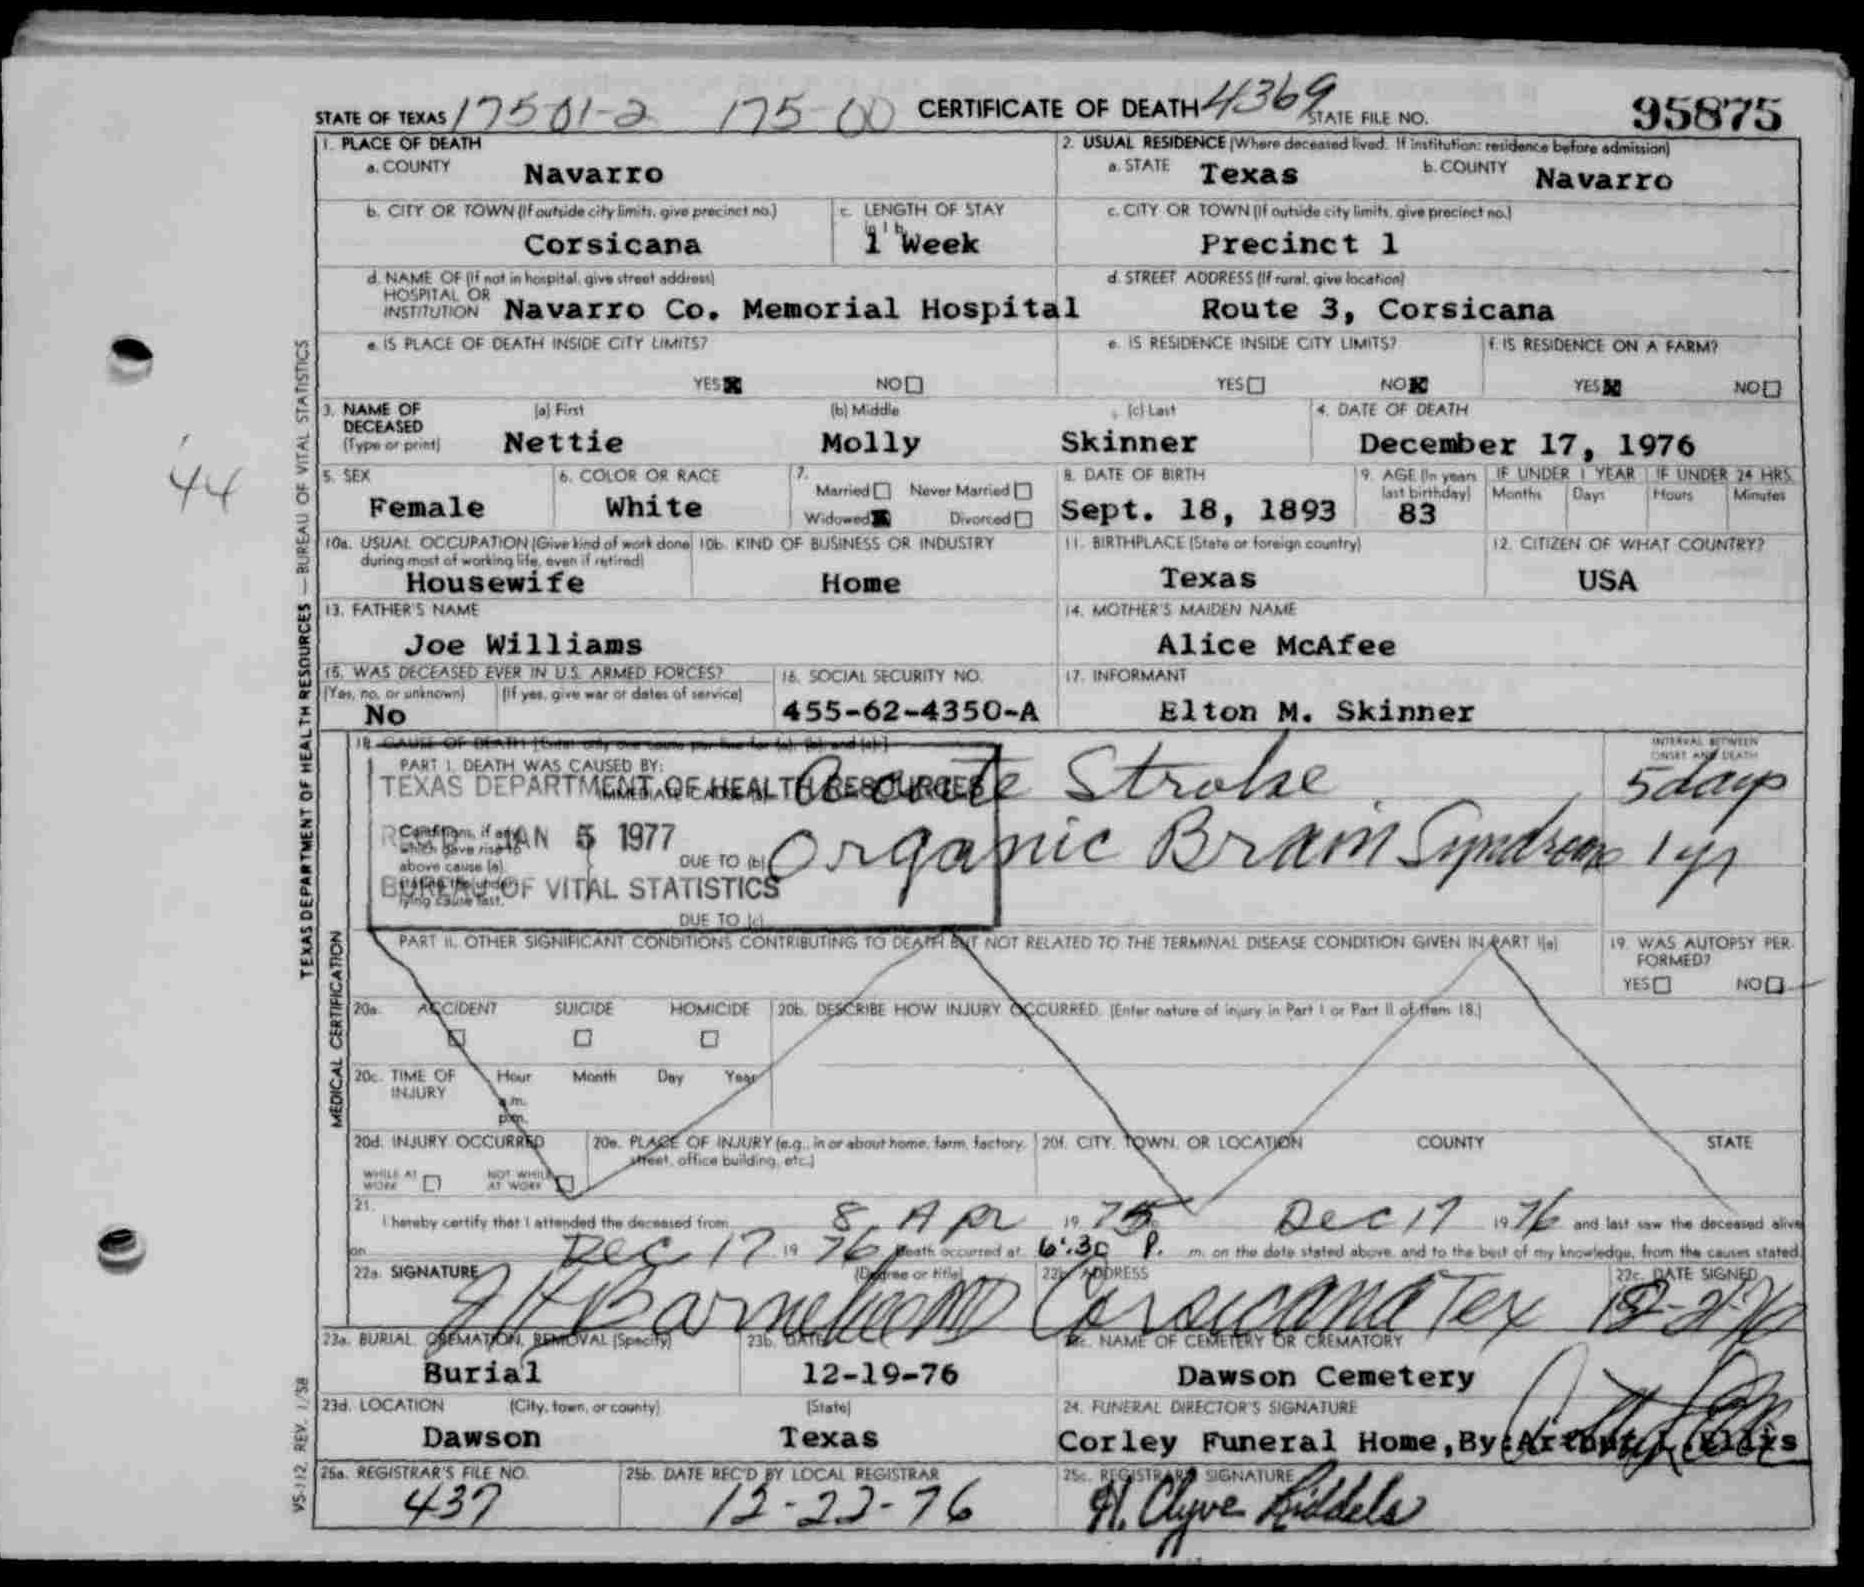 STATE OF TEXAS 17501-2 175-00 CERTIFICATE OF DEATH 4369 STATE FILE NO. 95875
1. PLACE OF DEATH
a. COUNTY Navarro
2. USUAL RESIDENCE (Where deceased lived. If institution: residence before admission)
a. STATE Texas b. COUNTY Navarro
b. CITY OR TOWN (If outside city limits, give precinct no.) Corsicana
c. LENGTH OF STAY in 1b 1 Week
c. CITY OR TOWN (If outside city limits, give precinct no.) Precinct 1
d. NAME OF (If not in hospital, give street address)
HOSPITAL OR
INSTITUTION Navarro Co. Memorial Hospital
d. STREET ADDRESS (If rural, give location) Route 3, Corsicana
e. IS PLACE OF DEATH INSIDE CITY LIMITS?
YES NO
e. IS RESIDENCE INSIDE CITY LIMITS?
YES NO
f. IS RESIDENCE ON A FARM?
YES NO
3. NAME OF DECEASED (Type or print)
(a) First Nettie
(b) Middle Molly
(c) Last Skinner
4. DATE OF DEATH December 17, 1976
44
5. SEX Female
6. COLOR OR RACE White
7. Married Never Married
Widowed Divorced
8. DATE OF BIRTH Sept. 18, 1893
9. AGE (In years last birthday) 83
IF UNDER 1 YEAR Months Days
IF UNDER 24 HRS. Hours Minutes
10a. USUAL OCCUPATION (Give kind of work done during most of working life, even if retired) Housewife
10b. KIND OF BUSINESS OR INDUSTRY Home
11. BIRTHPLACE (State or foreign country) Texas
12. CITIZEN OF WHAT COUNTRY? USA
13. FATHER'S NAME Joe Williams
14. MOTHER'S MAIDEN NAME Alice McAfee
15. WAS DECEASED EVER IN U.S. ARMED FORCES?
(Yes, no, or unknown) (If yes, give war or dates of service)
No
16. SOCIAL SECURITY NO. 455-62-4350-A
17. INFORMANT Elton M. Skinner
18. CAUSE OF DEATH [Enter only one cause per line for (a), (b), and (c).]
INTERVAL BETWEEN ONSET AND DEATH
PART I. DEATH WAS CAUSED BY:
IMMEDIATE CAUSE Acute Stroke 5 days
TEXAS DEPARTMENT OF HEALTH RESOURCES
JAN 5 1977
BUREAU OF VITAL STATISTICS
Conditions, if any, which gave rise to above cause (a), stating the underlying cause last.
DUE TO (b) Organic Brain Syndrome 1 yr
DUE TO (c)
PART II. OTHER SIGNIFICANT CONDITIONS CONTRIBUTING TO DEATH BUT NOT RELATED TO THE TERMINAL DISEASE CONDITION GIVEN IN PART I(a)
19. WAS AUTOPSY PERFORMED?
YES NO
20a. ACCIDENT SUICIDE HOMICIDE
20b. DESCRIBE HOW INJURY OCCURRED. (Enter nature of injury in Part I or Part II of Item 18.)
20c. TIME OF INJURY Hour Month Day Year
a.m.
p.m.
20d. INJURY OCCURRED
WHILE AT WORK NOT WHILE AT WORK
20e. PLACE OF INJURY (e.g., in or about home, farm, factory, street, office building, etc.)
20f. CITY, TOWN, OR LOCATION COUNTY STATE
21.
I hereby certify that I attended the deceased from 8 Apr 1975 Dec 17 1976 and last saw the deceased alive
on Dec 17 1976 Death occurred at 6:30 P. m. on the date stated above, and to the best of my knowledge, from the causes stated.
22a. SIGNATURE (Degree or title)
22b. ADDRESS Corsicana Tex
22c. DATE SIGNED
23a. BURIAL, CREMATION, REMOVAL (Specify) Burial
23b. DATE 12-19-76
23c. NAME OF CEMETERY OR CREMATORY Dawson Cemetery
23d. LOCATION (City, town, or county) Dawson
(State) Texas
24. FUNERAL DIRECTOR'S SIGNATURE
Corley Funeral Home, By:
25a. REGISTRAR'S FILE NO. 437
25b. DATE REC'D BY LOCAL REGISTRAR 12-22-76
25c. REGISTRAR'S SIGNATURE H. Clyve
TEXAS DEPARTMENT OF HEALTH RESOURCES — BUREAU OF VITAL STATISTICS
MEDICAL CERTIFICATION
VS-112, REV. 1/58